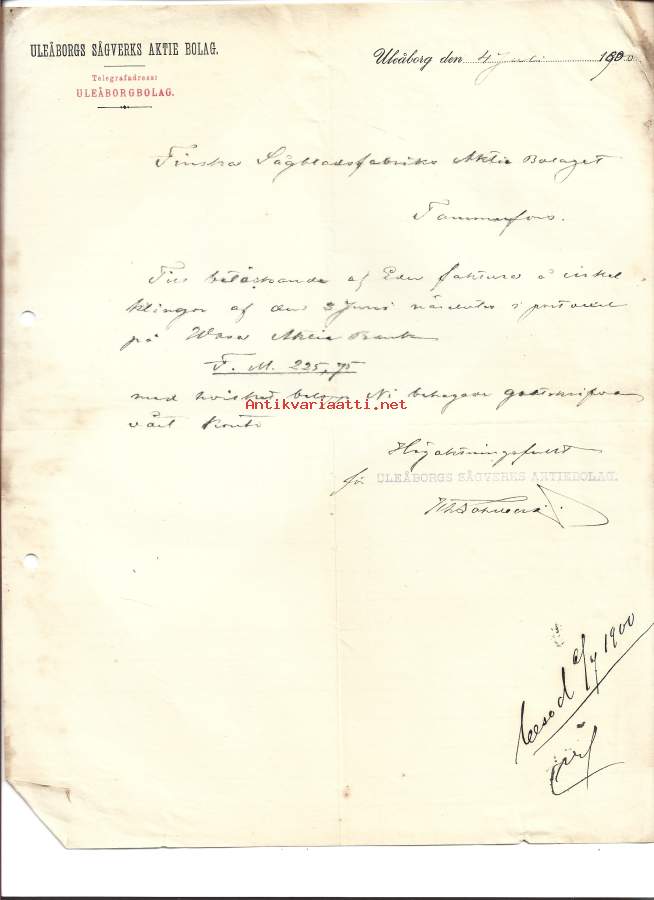 ULEÅBORGS SÅGVERKS AKTIE BOLAG.
Telegrafadress:
ULEÅBORGBOLAG.
Uleåborg den 4 Juli 1900
Finska Sågbladsfabriks Aktie Bolaget
Tammerfors.
Till betäckande af Eder faktura å cirkel
klingor af den 3 Juni
på Wasa Aktie Bank
F. M. 225,75
med hvilket belopp Ni behagade
vårt Konto
Antikvariaatti.net
Högaktningsfullt
för ULEÅBORGS SÅGVERKS AKTIEBOLAG.
1900